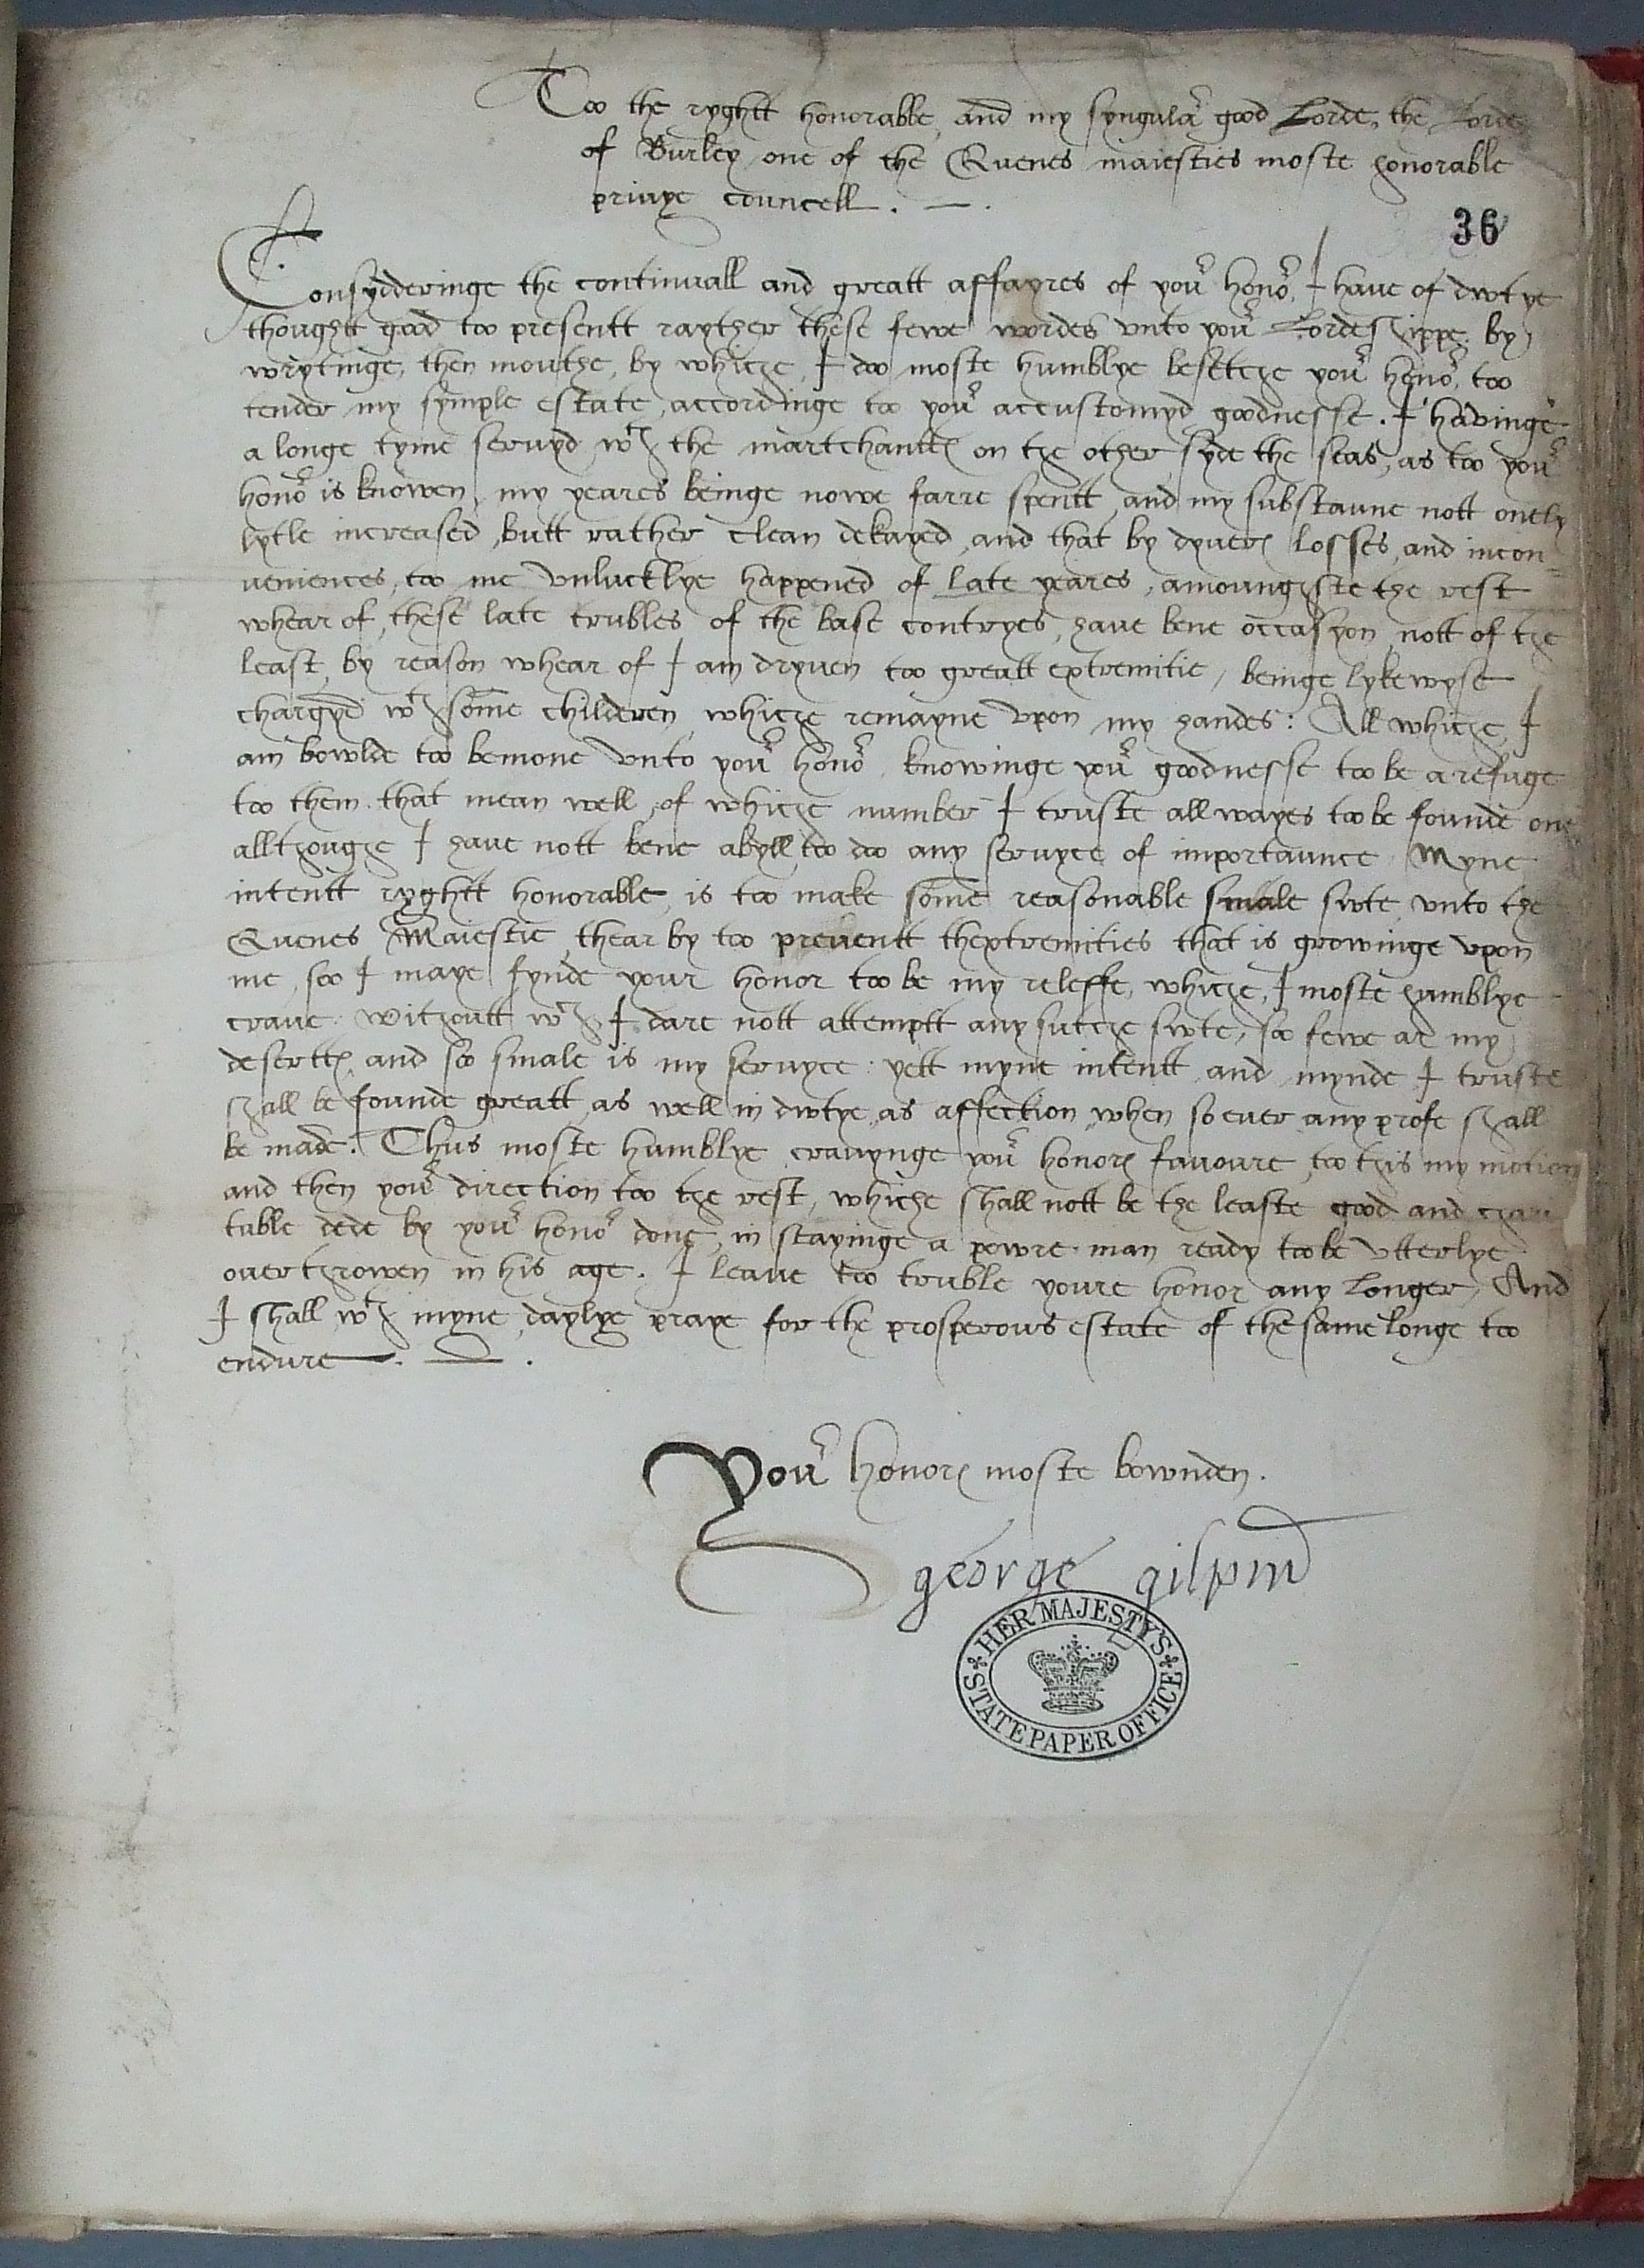 Too the ryghtt honorable, and my syngular good Lorde, the Lorde
of Burley one of the Quenes maiesties moste honorable
privye councell. —.
36
Consydderinge the continuall and greatt affayres of your honor, I have of dwtye
thoughtt good too presentt rayther these fewe wordes vnto your Lordeshippe. by
wrytinge, then mouthe, by whiche, I doo moste humblye besetche your honor, too
tender my symple estate, accordinge too your accustomyd goodnesse. I havinge
a longe tyme servyd wth the martchauntes on the other syde the seas, as too your
honor is knowen, my yeares beinge nowe farre spentt, and my substaunc nott onely
lytle increased, butt rather clean dekayed, and that by dyvers losses, and incon=
veniences, too me vnlucklye happened of late yeares, amoungste the rest
whear of, these late trubles of the base contryes, have bene occasyon, nott of the
least, by reason whear of I am dryven too greatt extremitie, beinge lykewyse
chargyd wth some childeren, whiche remayne vpon my handes: All whiche, I
am bowlde too bemone vnto your honor, knowinge your goodnesse too be a refuge
too them. that mean well, of whiche number I truste allwayes too be founde one
allthoughe I have nott bene abyll too doo any servyce of importaunce Myne
intentt ryghtt honorable, is too make some reasonable smale swte, vnto the
Quenes Maiestie, thear by too preventt thextremities that is growinge vpon
me, soo I maye fynde your honor too be my releffe, whiche, I moste humblye
crave. withoutt wch, I dare nott attemptt any sutche swte, so fewe ar my
desertts, and soo smale is my servyce: yett myne intentt, and mynde I truste
shall be founde greatt, as well in dwtye, as affection, when so ever any profe shall
be made. Thus moste humblye cravynge your honors favoure, too this my motion
and then your direction too the rest, whiche shall nott be the leaste good and chari
table dede by your honor done, in stayinge a powre man ready too be vtterlye
overthrowen in his age. I leave too truble youre honor any longer, And
I shall wth myne, daylye praye for the prosperous estate of the same longe too
endure —. — .
Your honors moste bownden.
george gilpin
HER MAJESTY'S
STATE PAPER OFFICE